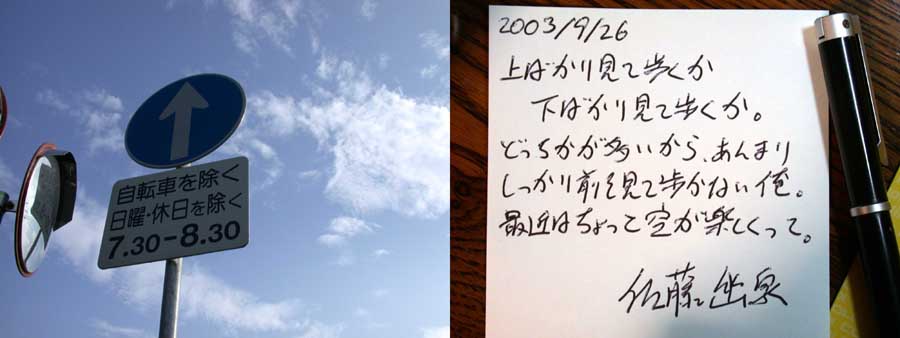 自転車を除く
日曜・休日を除く
7.30-8.30
2003/9/26
上ばかり見て歩くか
下ばかり見て歩くか。
どっちかが多いから、あんまり
しっかり前を見て歩かない俺。
最近はちょっと空が楽しくって。
佐藤